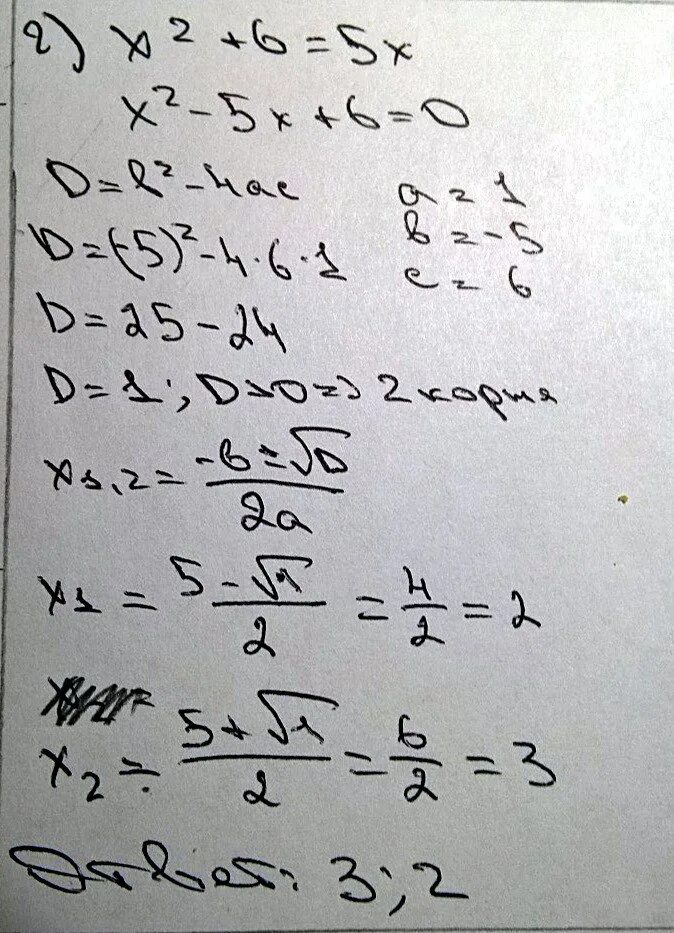 2) x² + 6 = 5x
x² - 5x + 6 = 0
D = b² - 4ac
a = 1
D = (-5)² - 4 · 6 · 1
b = -5
c = 6
D = 25 - 24
D = 1 ; D > 0 => 2 корня
x1,2 = (-b ± √D) / 2a
x1 = (5 - √1) / 2 = 4/2 = 2
x2 = (5 + √1) / 2 = 6/2 = 3
Ответ: 3; 2